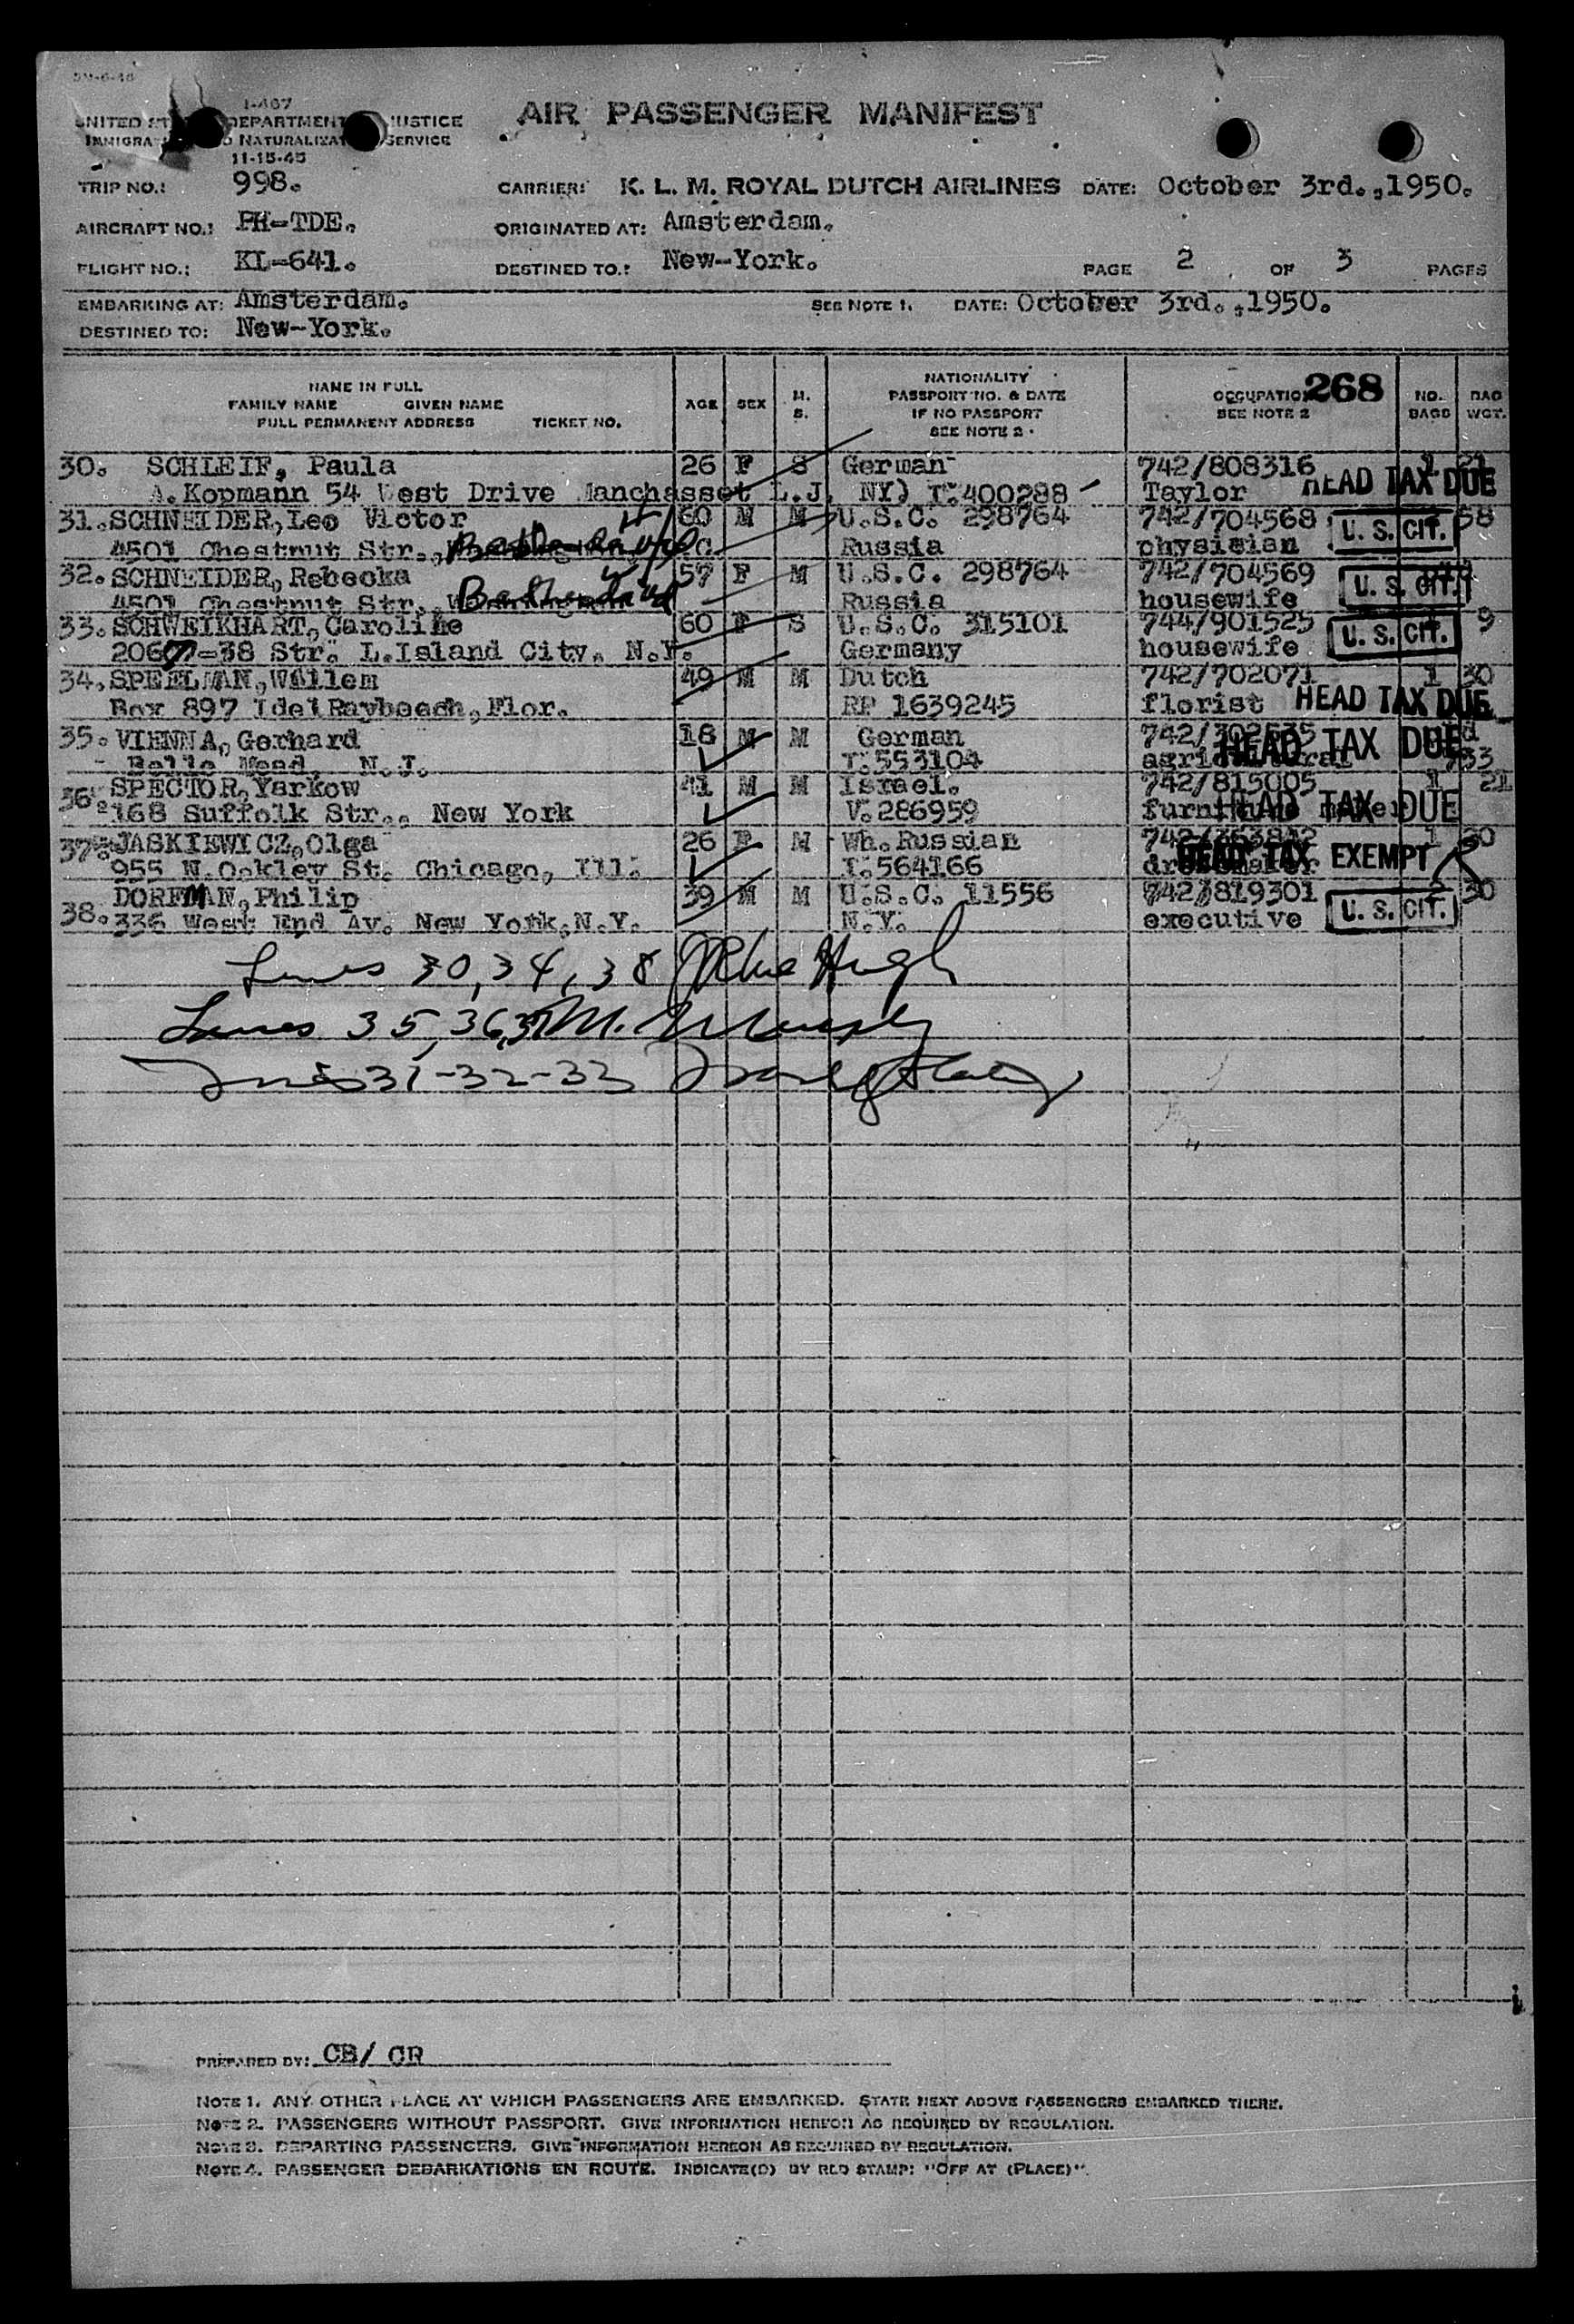 I-467
UNITED DEPARTMENT JUSTICE
NATURALIZAT SERVICE
11-15-45
AIR PASSENGER MANIFEST
TRIP NO.: 998. CARRIER: K. L. M. ROYAL DUTCH AIRLINES DATE: October 3rd.,1950.
AIRCRAFT NO.: PH-TDE. ORIGINATED AT: Amsterdam.
FLIGHT NO.: KL-641. DESTINED TO.: New-York. PAGE 2 OF 3 PAGES
EMBARKING AT: Amsterdam. SEE NOTE 1. DATE: October 3rd.,1950.
DESTINED TO: New-York.
NAME IN FULL
FAMILY NAME GIVEN NAME
FULL PERMANENT ADDRESS TICKET NO.
AGE SEX M. S.
NATIONALITY
PASSPORT NO. & DATE
IF NO PASSPORT
SEE NOTE 2
OCCUPATIO 268
SEE NOTE 2
NO. BAGS BAG WGT.
30. SCHLEIF, Paula 26 F S German 742/808316 1 21
A.Kopmann 54 West Drive Manchasset L.J. NY) I.400288 Taylor HEAD TAX DUE
31. SCHNEIDER,Leo Victor 60 M M U.S.C. 298764 742/704568 58
4501 Chestnut Str., Russia physician U. S. CIT.
32. SCHNEIDER, Rebecka 57 F M U.S.C. 298764 742/704569
4501 Chestnut Str., Russia housewife U. S. CIT.
33. SCHWEIKHART, Caroline 60 F S U.S.C. 315101 744/901525 9
2067-38 Str. L.Island City, N.Y. Germany housewife U. S. CIT.
34. SPEELMAN, Willem 49 M M Dutch 742/702071 1 30
Box 897 Idel Raybeech, Flor. RP 1639245 florist HEAD TAX DUE
35. VIENNA, Gerhard 18 M M German
Belle Mead, N.J. I.553104 HEAD TAX DUE 33
36. SPECTOR, Yarkow 41 M M Israel. 742/815005 1 21
168 Suffolk Str., New York V.286959 HEAD TAX DUE
37. JASKIEWICZ, Olga 26 F M Wh. Russian 1 30
955 N.Oakley St. Chicago, Ill. I.564166 HEAD TAX EXEMPT
38. DORFMAN, Philip 39 M M U.S.C. 11556 742/819301 2 30
336 West End Av. New York,N.Y. N.Y. executive U. S. CIT.
Lines 30, 34, 38
Lines 35, 36, 37 M.
Lines 31-32-33
PREPARED BY: CB/ CR
NOTE 1. ANY OTHER PLACE AT WHICH PASSENGERS ARE EMBARKED. STATE NEXT ABOVE PASSENGERS EMBARKED THERE.
NOTE 2. PASSENGERS WITHOUT PASSPORT. GIVE INFORMATION HEREON AS REQUIRED BY REGULATION.
NOTE 3. DEPARTING PASSENGERS. GIVE INFORMATION HEREON AS REQUIRED BY REGULATION.
NOTE 4. PASSENGER DEBARKATIONS EN ROUTE. INDICATE(D) BY RED STAMP: "OFF AT (PLACE)".